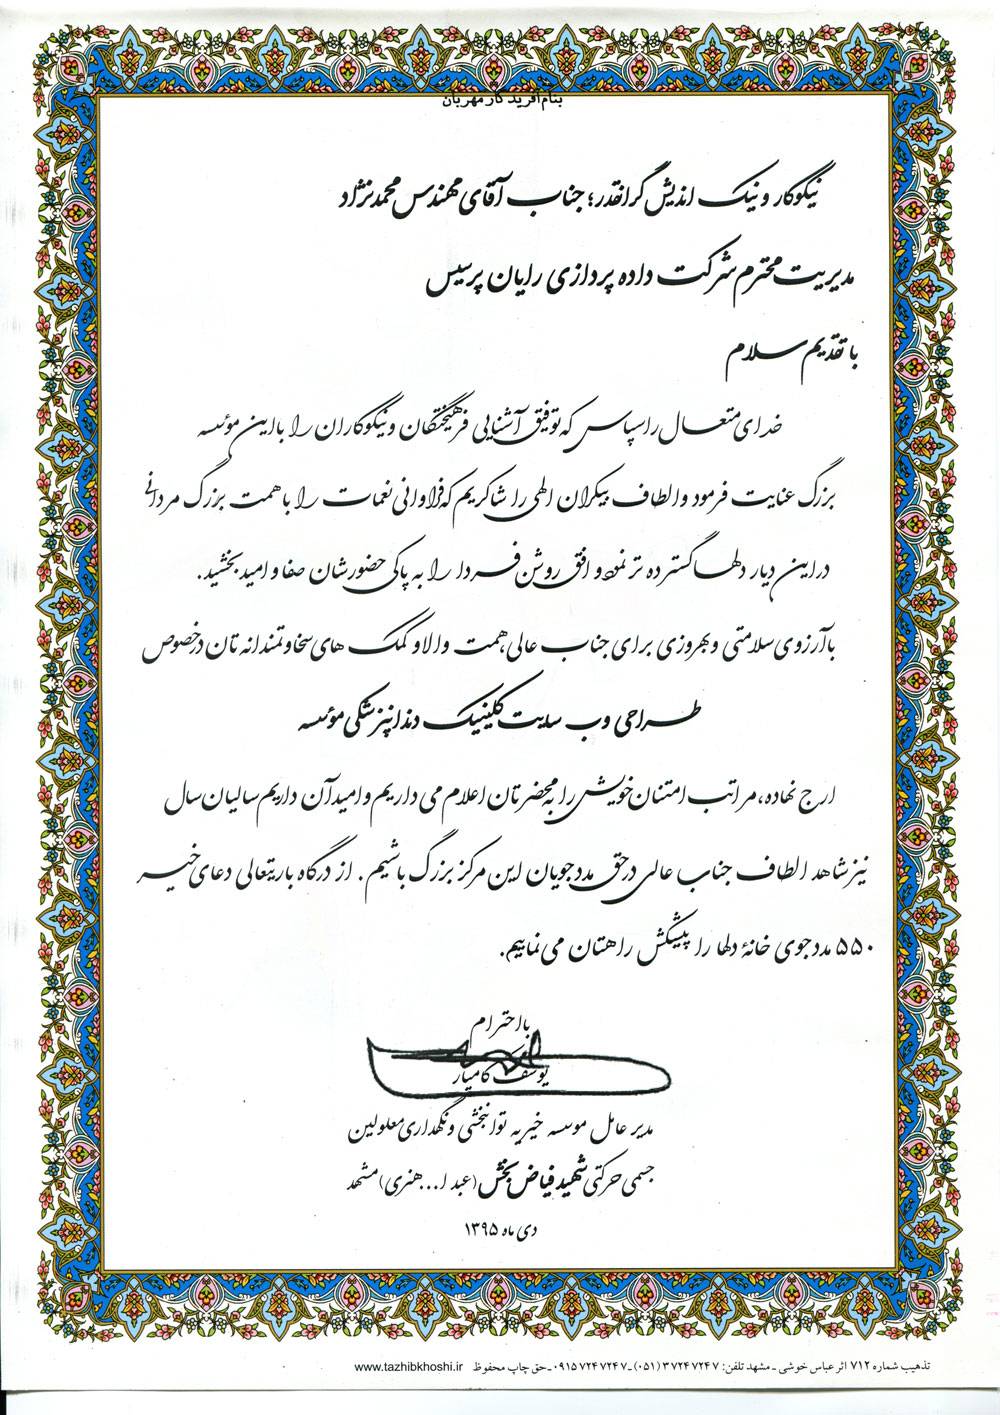 بنام آفریدگار مهربان
نیکوکار و نیک اندیش گرانقدر؛ جناب آقای مهندس محمدنژاد
مدیریت محترم شرکت داده پردازی رایان پرسیس
با تقدیم سلام
خدای متعال را سپاس که توفیق آشنایی فرهیختگان و نیکوکاران را با این مؤسسه
بزرگ عنایت فرمود و الطاف بیکران الهی را شاکریم که فراوانی نغمات را با همت بزرگ مردانی
در این دیار دلها گسترده تر نموده و افق روشن فردا را به پاکی حضورشان صفا و امید بخشید.
با آرزوی سلامتی و بهروزی برای جناب عالی، همت والا و کمک های سخاوتمندانه تان در خصوص
طراحی وب سایت کلینیک دندانپزشکی مؤسسه
ارج نهاده، مراتب امتنان خویش را به محضرتان اعلام می داریم و امید آن داریم سالیان سال
نیز شاهد الطاف جناب عالی در حق مددجویان این مرکز بزرگ باشیم. از درگاه باریتعالی دعای خیر
۵۵۰ مددجوی خانهٔ دلها را پیشکش راهتان می نماییم.
با احترام
یوسف کامیار
مدیر عامل موسسه خیریه توانبخشی و نگهداری معلولین
جسمی حرکتی شهید فیاض بخش (عبدا... هنری) مشهد
دی ماه ۱۳۹۵
تذهیب شماره ۷۱۲ اثر عباس خوشی - مشهد تلفن: ۳۷۲۴۷۲۴۷ (۰۵۱) - ۰۹۱۵۷۲۴۷۲۴۷ - حق چاپ محفوظ www.tazhibkhoshi.ir